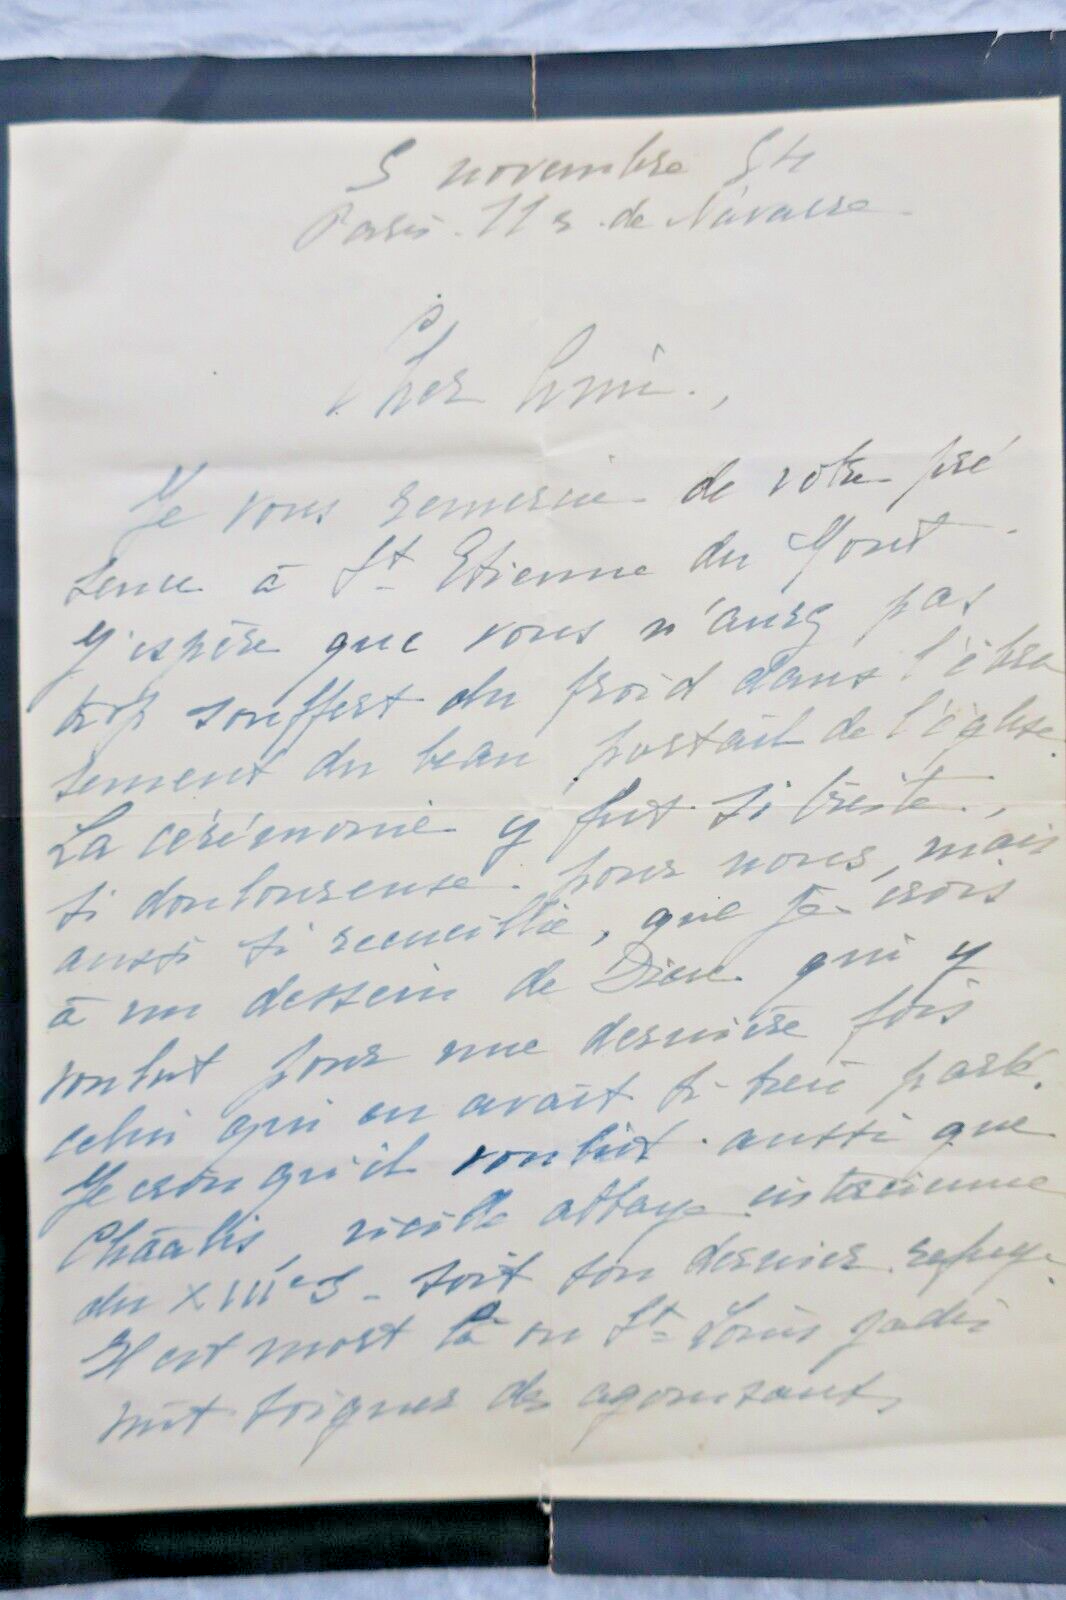 5 novembre 54
Paris. 11 r. de Navarre.
Cher Ami.,
Je vous remercie de votre pré
sence à St Etienne du Mont.
J'espère que vous n'aurez pas
trop souffert du froid dans l'ébra
sement du beau portail de l'église.
La cérémonie y fut si triste,
si douloureuse pour nous, mais
aussi si recueillie, que je crois
à un dessein de Dieu qui y
voulut pour une dernière fois
celui qui en avait si bien parlé.
Je crois qu'il voulut aussi que
Châalis, vieille abbaye cistercienne
du XIIIe S. soit son dernier refuge.
Il est mort là où St Louis jadis
vint soigner des agonisants